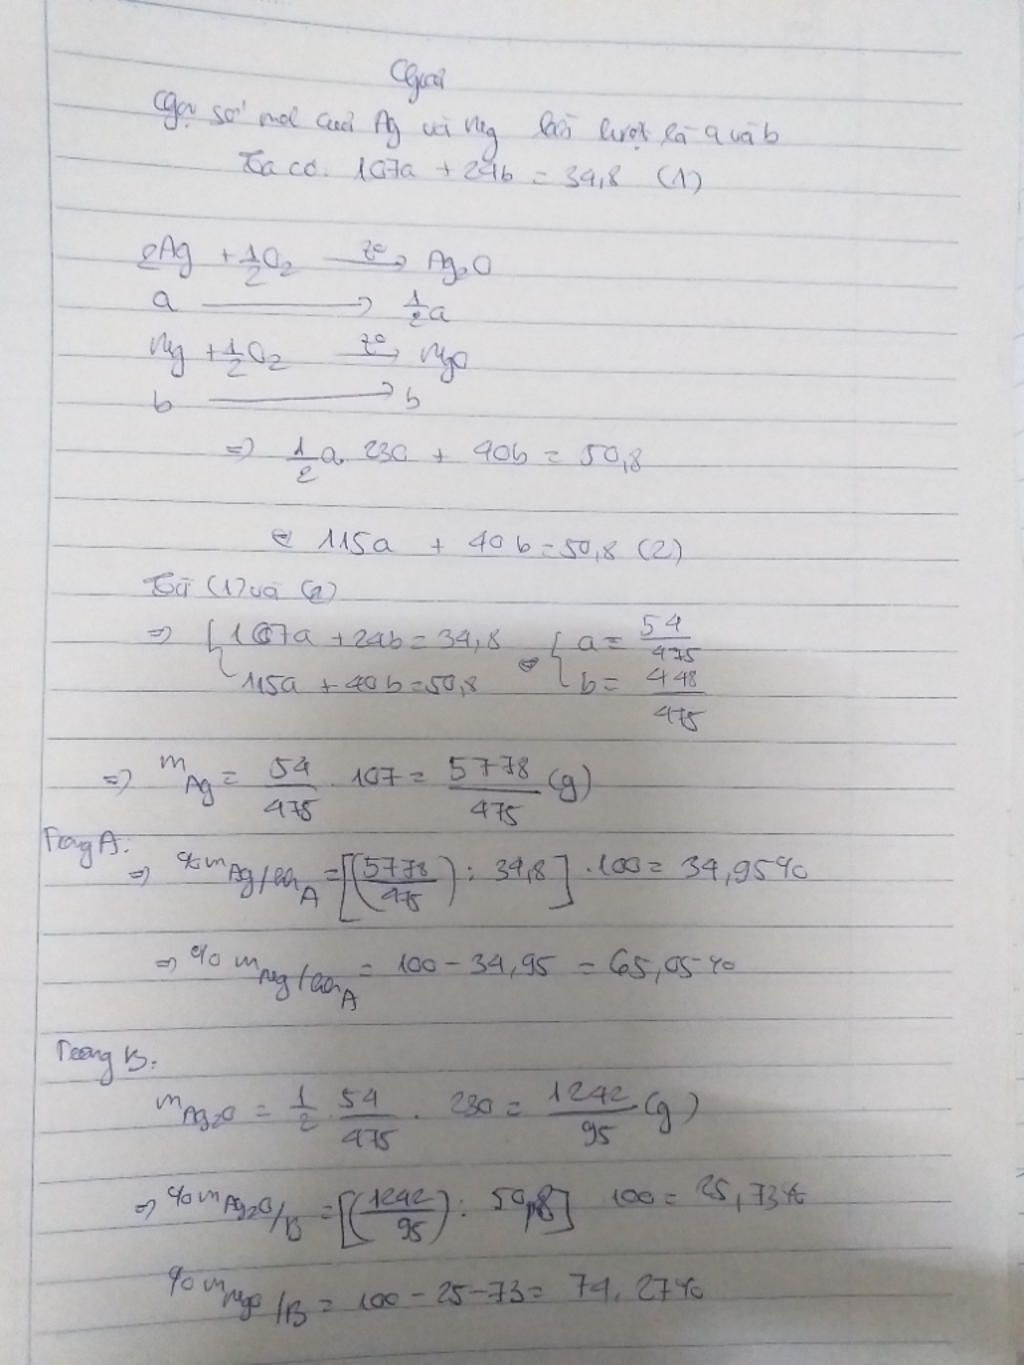 Giải
Gọi số mol của Ag và Mg lần lượt là a và b
Ta có: 107a + 24b = 34,8 (1)
2Ag + 1/2O2 —t°→ Ag2O
a ———→ 1/2a
Mg + 1/2O2 —t°→ MgO
b ———→ b
=> 1/2a. 230 + 40b = 50,8
<=> 115a + 40b = 50,8 (2)
Từ (1) và (2)
=> { 107a + 24b = 34,8 <=> { a = 54/475
115a + 40b = 50,8 b = 448/475
=> mAg = 54/475 . 107 = 5778/475 (g)
Trong A:
=> %mAg/hhA = [(5778/475) : 34,8] . 100 = 34,95%
=> %mMg/hhA = 100 - 34,95 = 65,05%
Trong B:
mAg2O = 1/2 . 54/475 . 230 = 1242/95 (g)
=> %mAg2O/B = [(1242/95) : 50,8] 100 = 25,73%
%mMgO/B = 100 - 25-73 = 74,27%